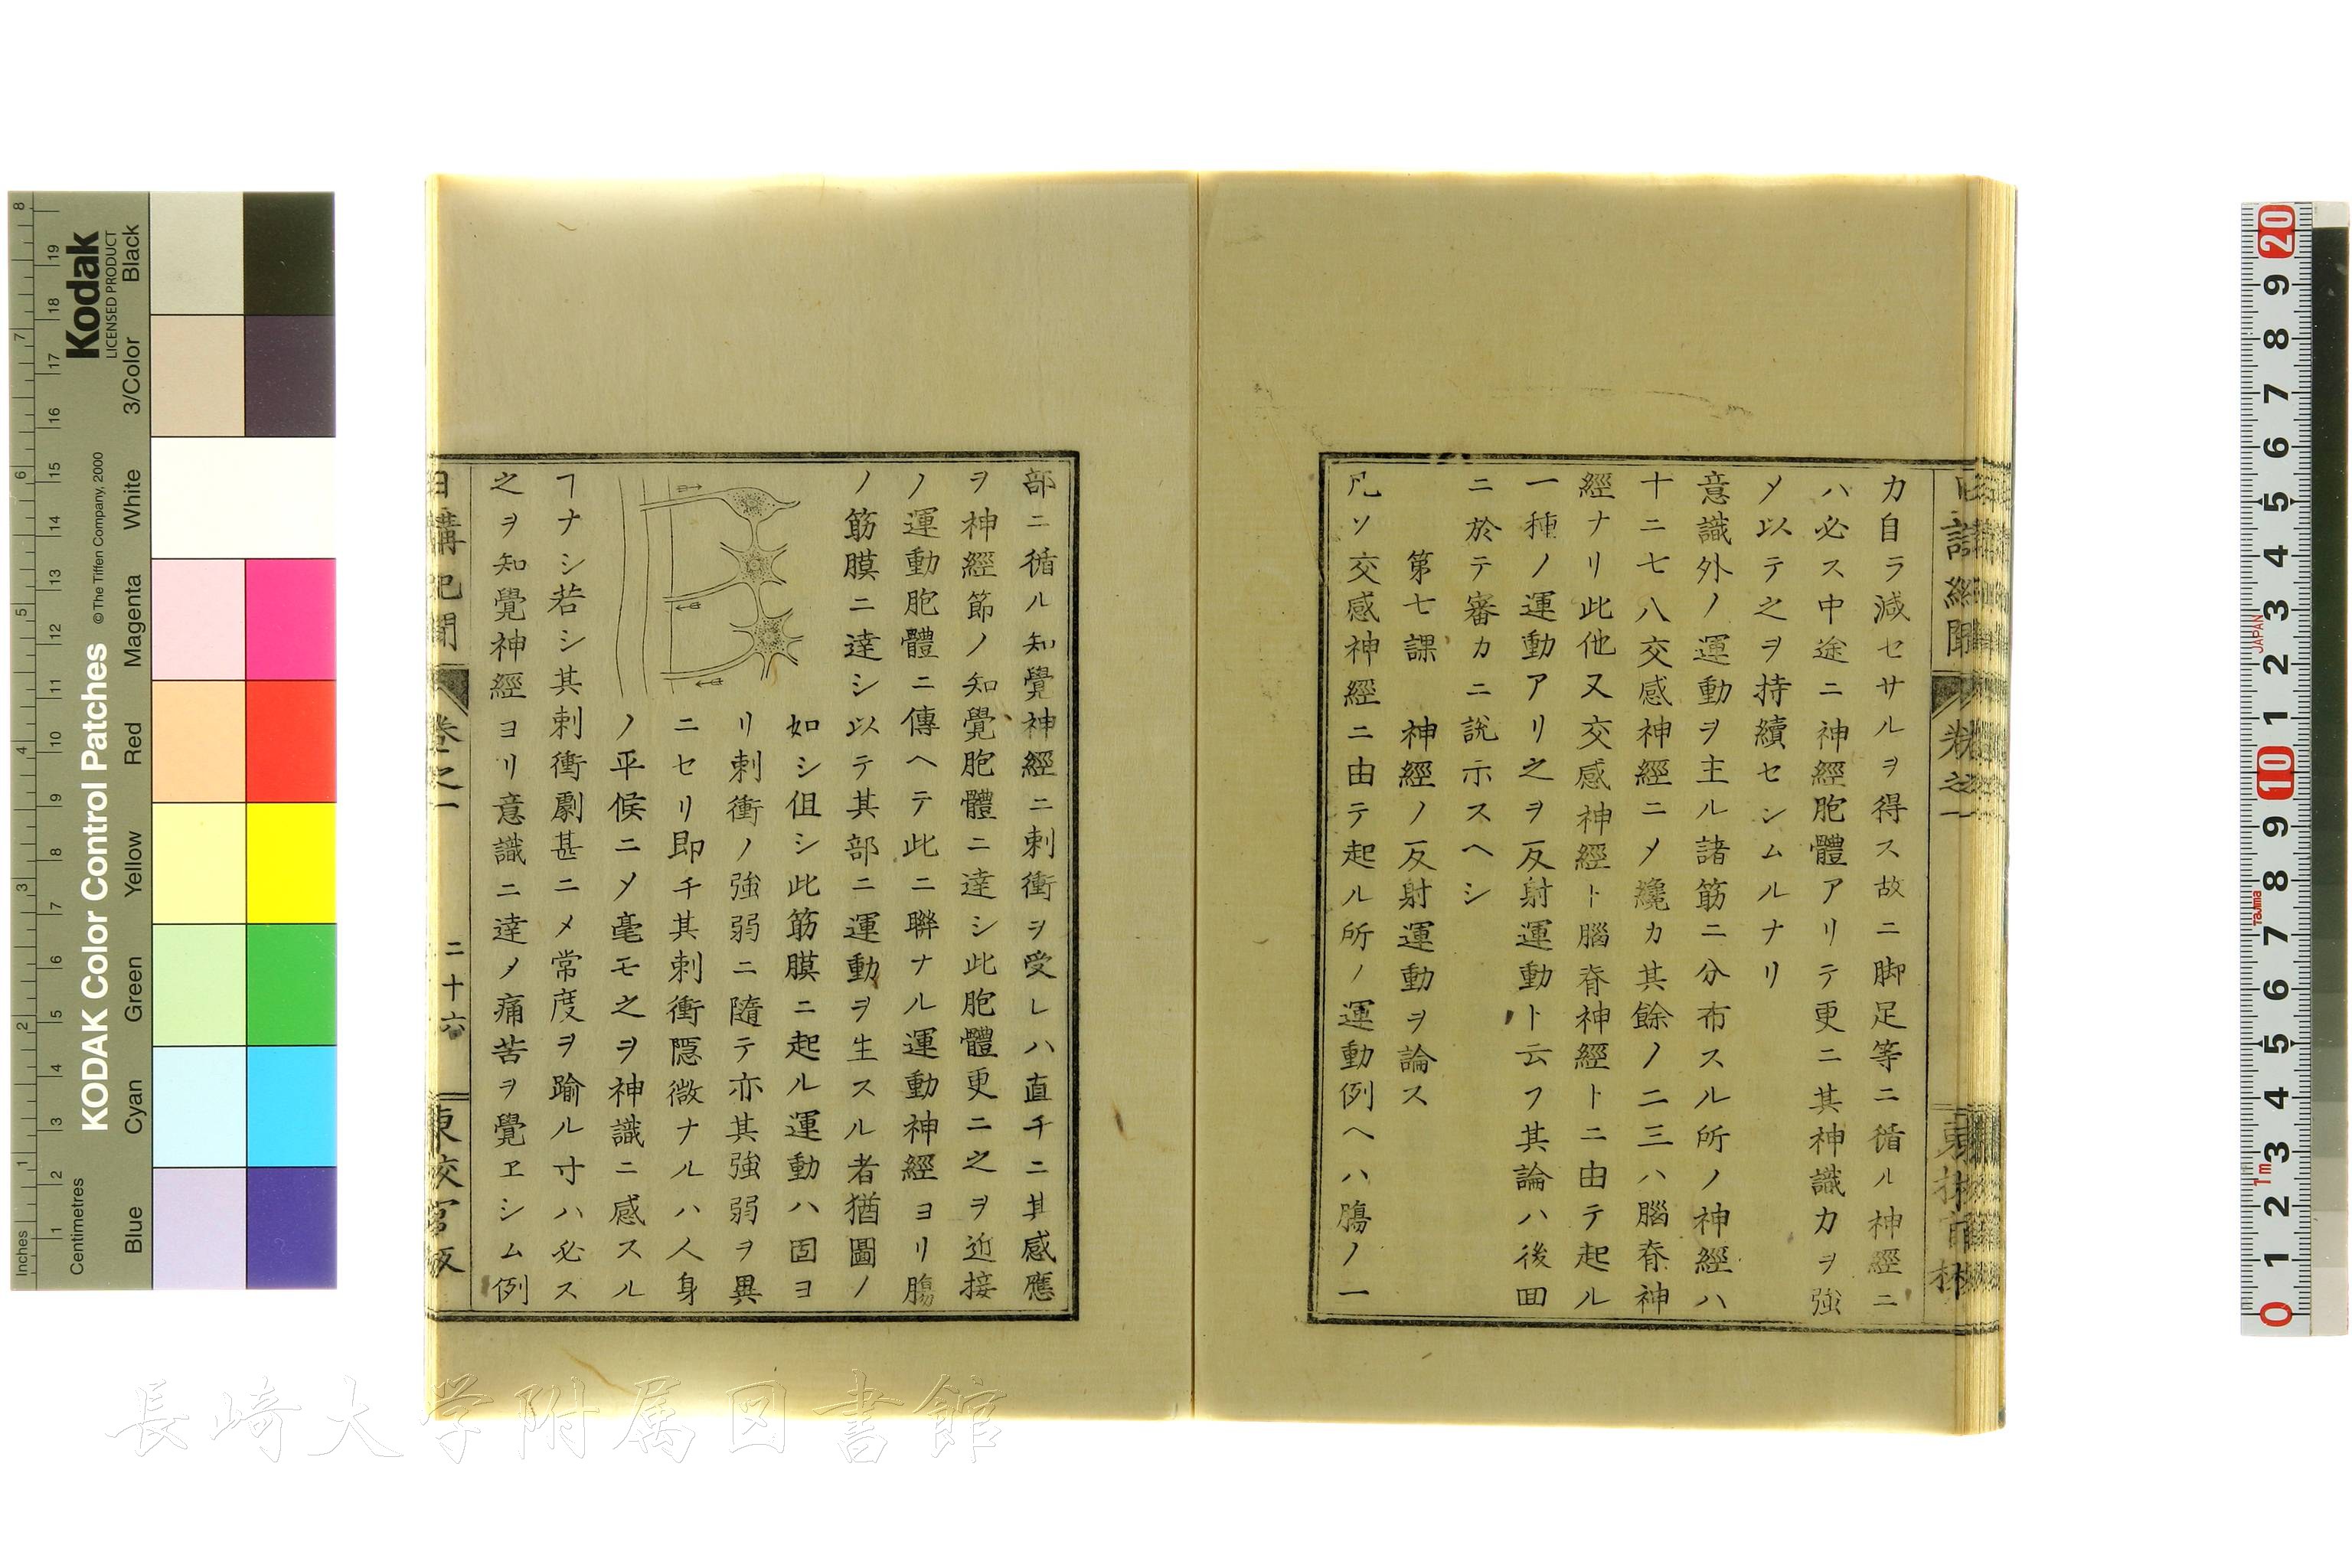 力自ラ減セサルヲ得ス故ニ脚足等ニ循ル神經ニ
ハ必ス中途ニ神經胞體アリテ更ニ其神識力ヲ強
メ以テ之ヲ持續セシムルナリ
意識外ノ運動ヲ主ル諸筋ニ分布スル所ノ神經ハ
十ニ七八交感神經ニメ纔カ其餘ノ二三ハ腦脊神
經ナリ此他又交感神經ト腦脊神經トニ由テ起ル
一種ノ運動アリ之ヲ反射運動ト云フ其論ハ後回
ニ於テ審カニ説示スヘシ
第七課　神經ノ反射運動ヲ論ス
凡ソ交感神經ニ由テ起ル所ノ運動例ヘハ膓ノ一
部ニ循ル知覺神經ニ刺衝ヲ受レハ直チニ其感應
ヲ神經節ノ知覺胞體ニ達シ此胞體更ニ之ヲ近接
ノ運動胞體ニ傳ヘテ此ニ聯ナル運動神經ヨリ膓
ノ筋膜ニ達シ以テ其部ニ運動ヲ生スル者猶圖ノ
如シ但シ此筋膜ニ起ル運動ハ固ヨ
リ刺衝ノ強弱ニ隨テ亦其強弱ヲ異
ニセリ即チ其刺衝隱微ナルハ人身
ノ平候ニメ毫モ之ヲ神識ニ感スル
ヿナシ若シ其刺衝劇甚ニメ常度ヲ踰ル寸ハ必ス
之ヲ知覺神經ヨリ意識ニ達メ痛苦ヲ覺ヱシム例
日講記聞
卷之一
二十六
東校官版
長崎大学附属図書館
KODAK Color Control Patches
© The Tiffen Company, 2000
Kodak
LICENSED PRODUCT
Inches
Centimetres
Blue
Cyan
Green
Yellow
Red
Magenta
White
3/Color
Black
1 2 3 4 5 6 7 8
1 2 3 4 5 6 7 8 9 10 11 12 13 14 15 16 17 18 19
JAPAN
Tajima
1m
20 9 8 7 6 5 4 3 2 1 10 9 8 7 6 5 4 3 2 1 0